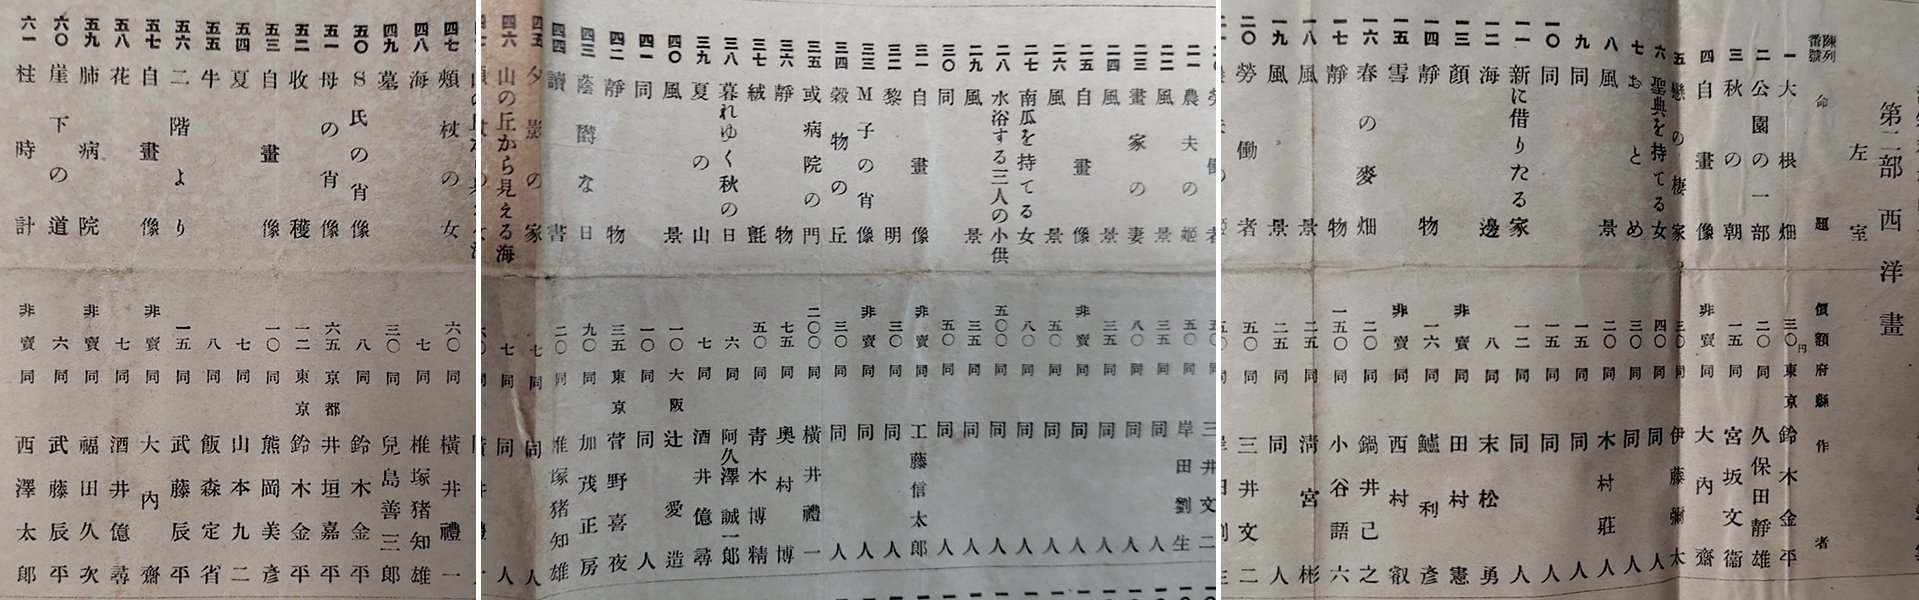 第二部 西洋畫
左室
陳列番號 命題 價額 府縣 作者
一 大根畑 三〇円 東京 鈴木金平
二 公園の一部 二〇 同 久保田靜雄
三 秋の朝 一五 同 宮坂文衞
四 自畫像 非賣 同 大內齋
五 戀の棲家 三〇 同 伊藤彌太
六 聖典を持てる女 四〇 同 同人
七 おとめ 三〇 同 同人
八 風景 二〇 同 木村莊八
九 同 一五 同 同人
一〇 同 一五 同 同人
一一 新に借りたる家 一二 同 同人
一二 海邊 八 同 末松勇
一三 顏 非賣 同 田村憲
一四 靜物 一六 同 鱸利彥
一五 雪 非賣 同 西村叡
一六 春の麥畑 二〇 同 鍋井己之
一七 靜物 一五〇 同 小谷語六
一八 風景 二五 同 淸宮彬
一九 風景 二五 同 同人
二〇 勞働者 五〇 同 三井文二
二一 農夫の姬 五〇 同 岸田劉生
二二 風景 三五 同 同人
二三 畫家の妻 八〇 同 同人
二四 風景 三五 同 同人
二五 自畫像 非賣 同 同人
二六 風景 五〇 同 同人
二七 南瓜を持てる女 八〇 同 同人
二八 水浴する三人の小供 五〇〇 同 同人
二九 風景 三五 同 同人
三〇 同 五〇 同 同人
三一 自畫像 非賣 同 工藤信太郎
三二 黎明 三〇 同 同人
三三 M子の肖像 非賣 同 同人
三四 穀物の丘 三〇 同 同人
三五 或病院の門 二〇〇 同 橫井禮一
三六 靜物 七五 同 奧村博
三七 絨氈 五〇 同 靑木博精
三八 暮れゆく秋の日 六 同 阿久澤誠一郞
三九 夏の山 七 同 酒井億尋
四〇 風景 一〇 大阪 辻愛造
四一 同 一〇 同 同人
四二 靜物 三五 東京 菅野喜夜
四三 蔭鬱な日 九〇 同 加茂正房
四四 讀書 二〇 同 椎塚猪知雄
四五 夕影の家 七 同 同人
四六 山の丘から見える海 七 同 同人
四七 頰杖の女 六〇 同 橫井禮一
四八 海 七 同 椎塚猪知雄
四九 墓 三〇 同 兒島善三郞
五〇 S氏の肖像 八 同 鈴木金平
五一 母の肖像 六五 京都 井垣嘉平
五二 收穫 一二 東京 鈴木金平
五三 自畫像 一〇 同 熊岡美彥
五四 夏 七 同 山本九二
五五 牛 八 同 飯森定省
五六 二階より 一五 同 武藤辰平
五七 自畫像 非賣 同 大內齋
五八 花 七 同 酒井億尋
五九 肺病院 非賣 同 福田久次
六〇 崖下の道 六 同 武藤辰平
六一 柱時計 非賣 同 西澤太郞